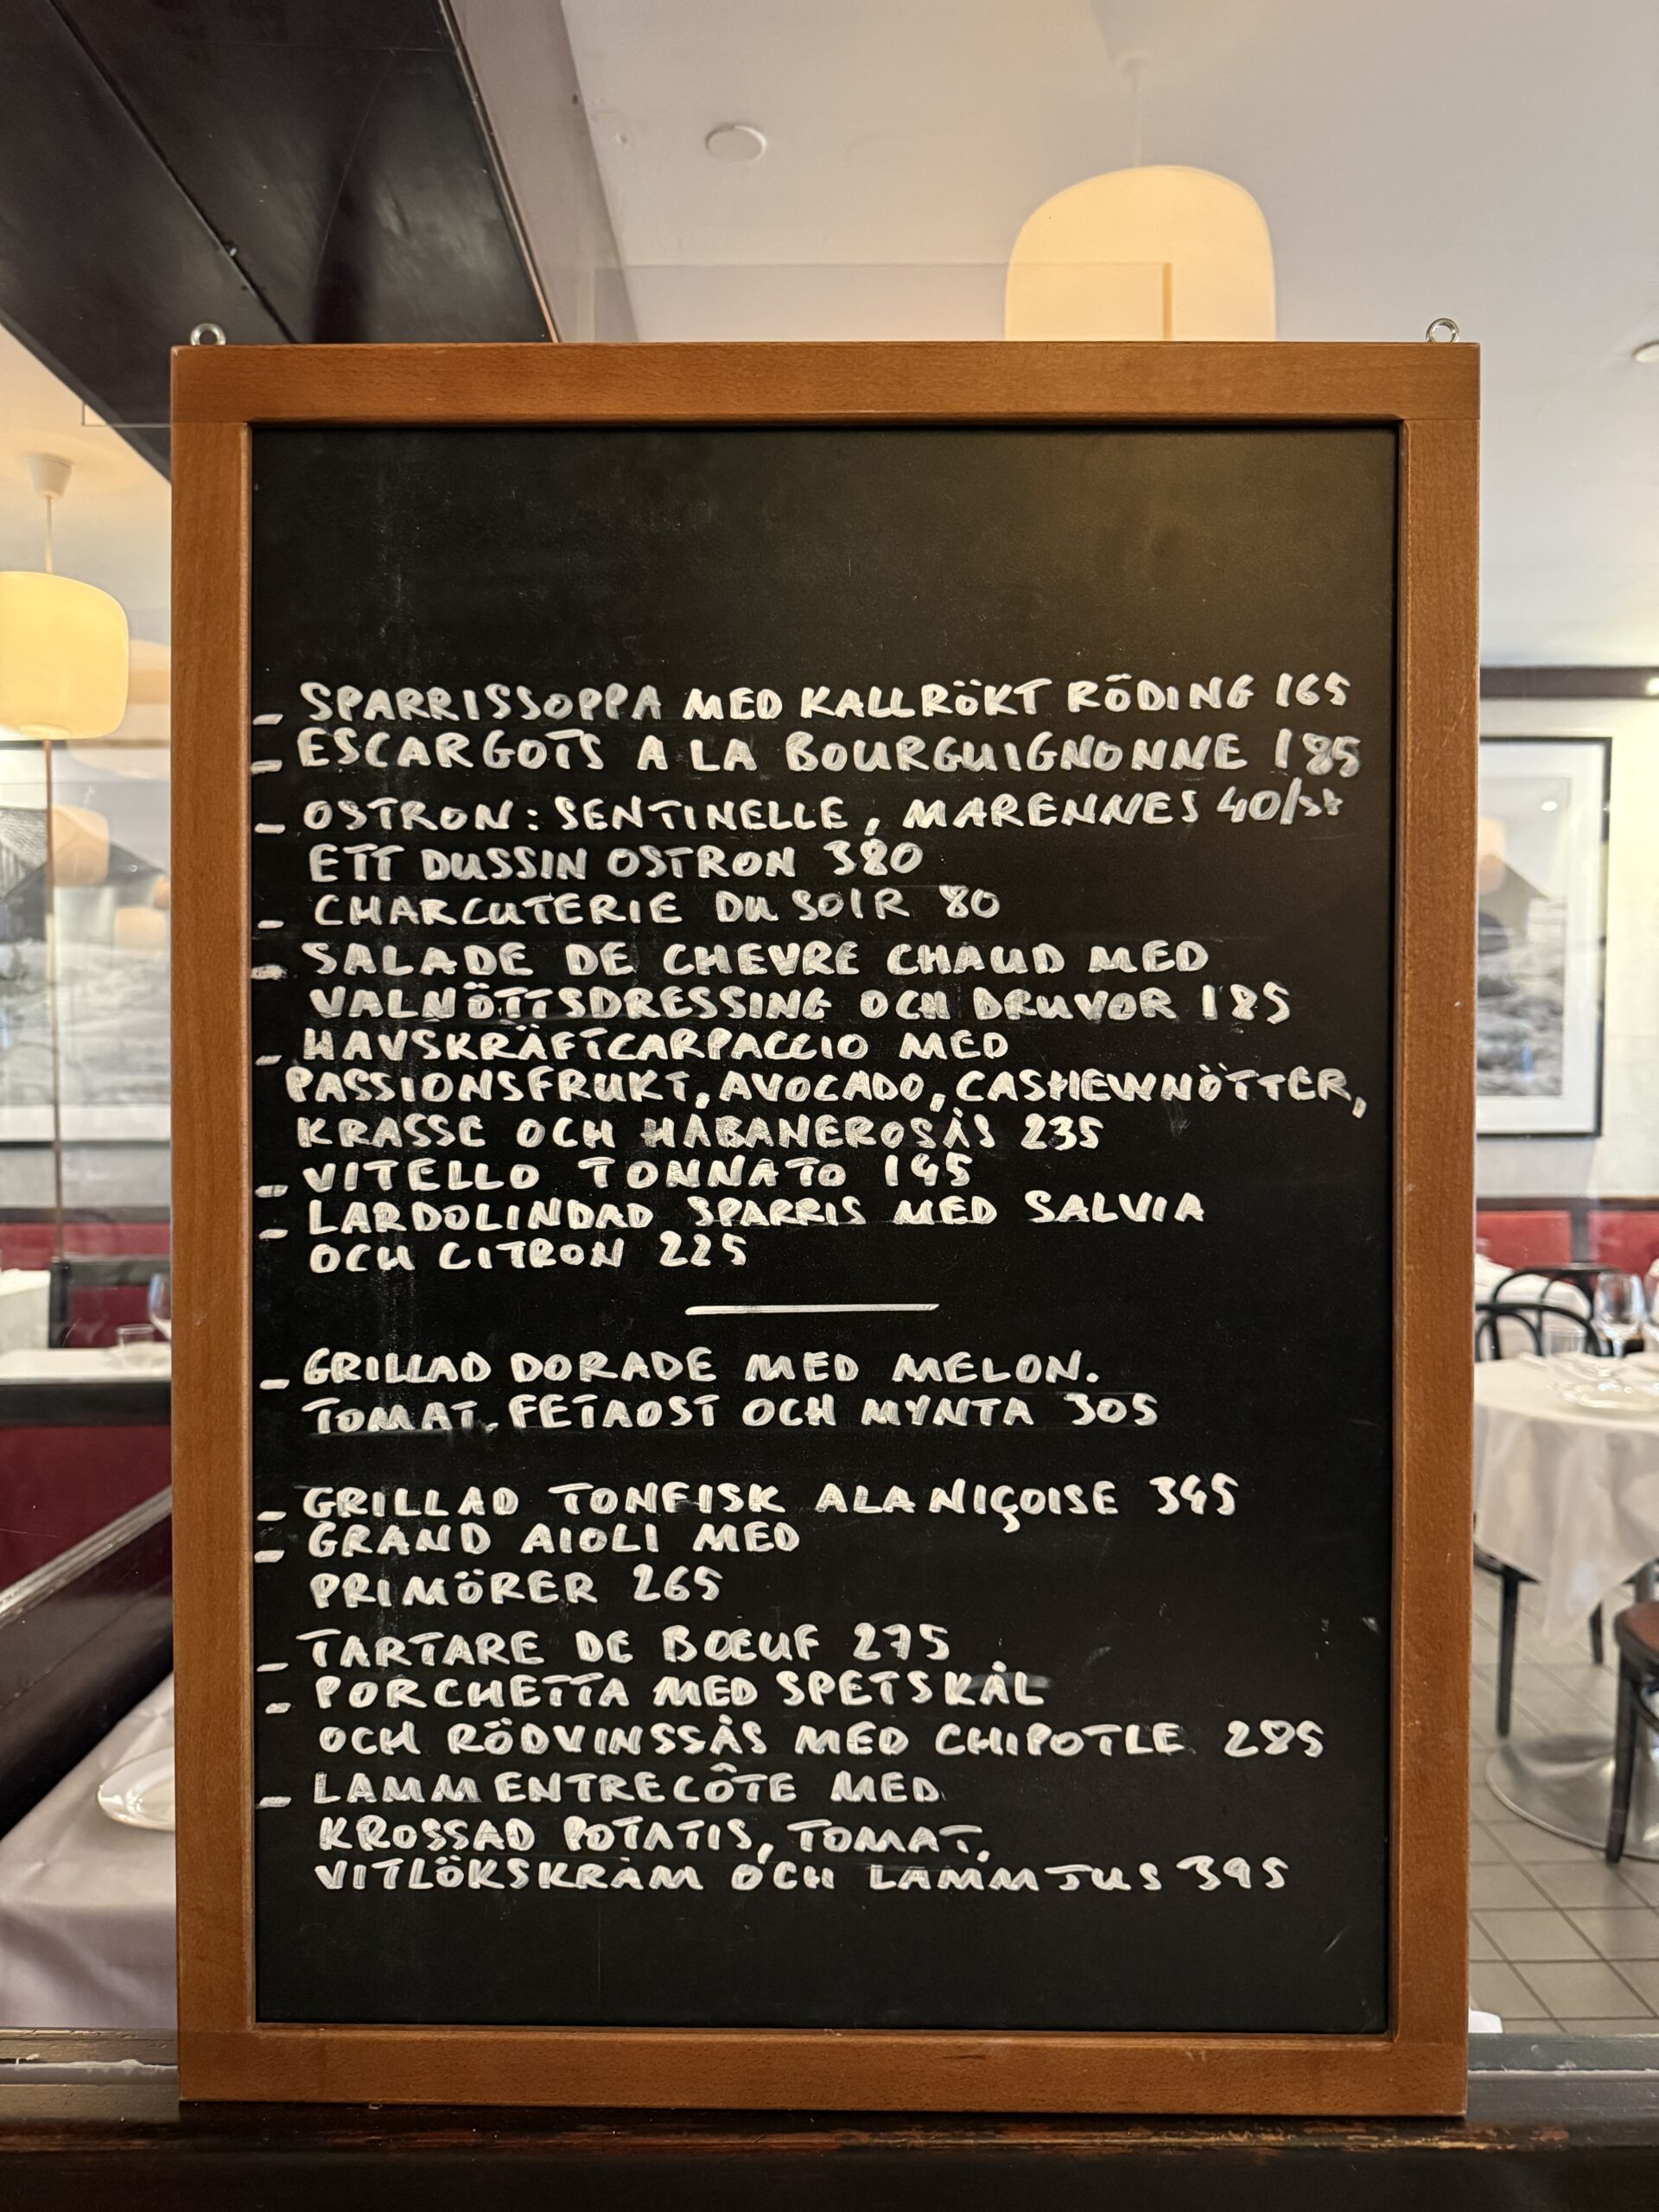 - SPARRISSOPPA MED KALLRÖKT RÖDING 165
- ESCARGOTS A LA BOURGUIGNONNE 185
- OSTRON: SENTINELLE, MARENNES 40/st
ETT DUSSIN OSTRON 380
- CHARCUTERIE DU SOIR 80
- SALADE DE CHEVRE CHAUD MED
VALNÖTTSDRESSING OCH DRUVOR 185
- HAVSKRÄFTCARPACCIO MED
PASSIONSFRUKT, AVOCADO, CASHEWNÖTTER,
KRASSE OCH HABANEROSÅS 235
- VITELLO TONNATO 195
- LARDOLINDAD SPARRIS MED SALVIA
OCH CITRON 225
- GRILLAD DORADE MED MELON.
TOMAT, FETAOST OCH MYNTA 305
- GRILLAD TONFISK ALA NIÇOISE 345
- GRAND AIOLI MED
PRIMÖRER 265
- TARTARE DE BŒUF 275
- PORCHETTA MED SPETSKÅL
OCH RÖDVINSSÅS MED CHIPOTLE 285
- LAMMENTRECÔTE MED
KROSSAD POTATIS, TOMAT,
VITLÖKSKRÄM OCH LAMMJUS 395